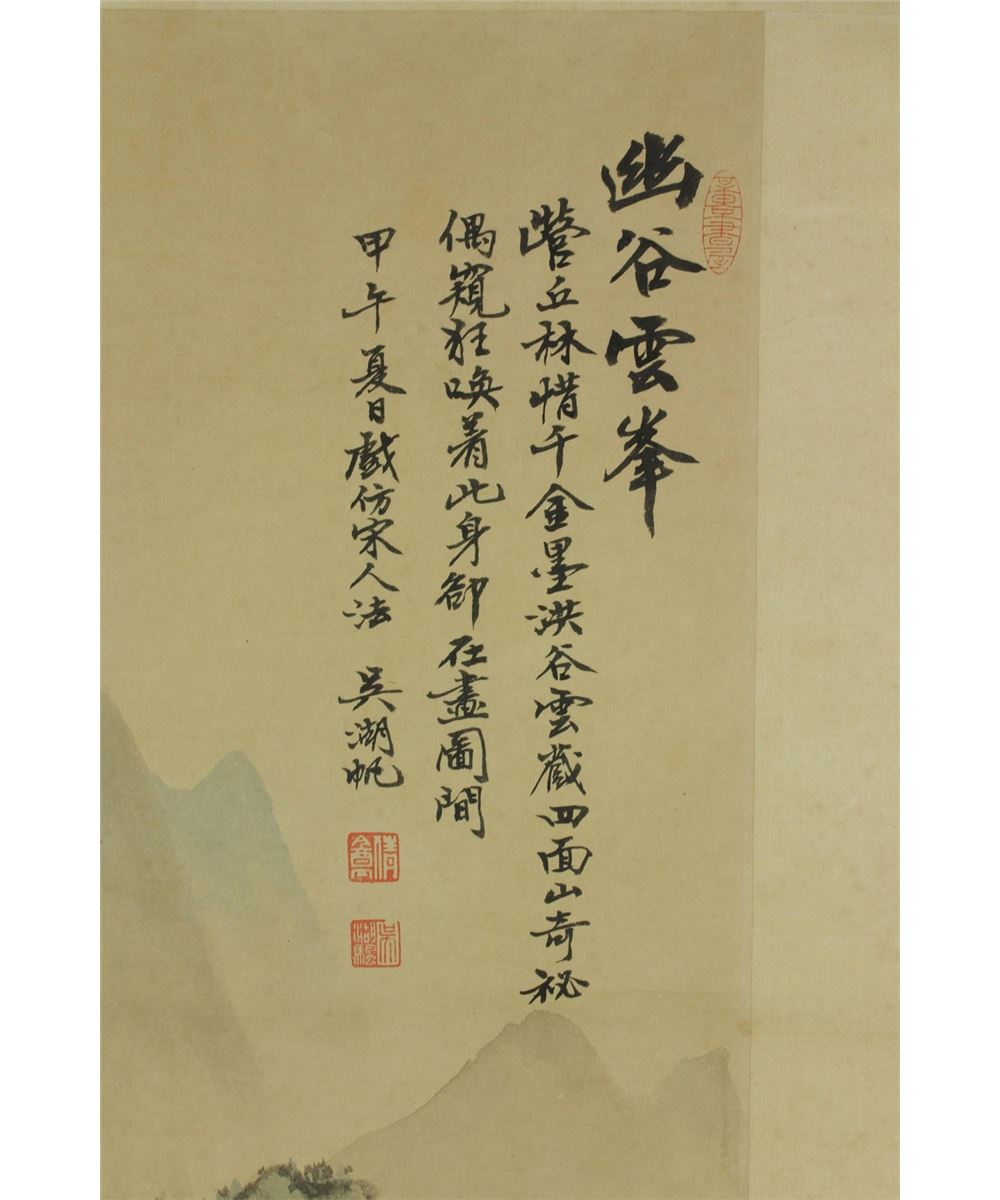 幽谷雲峯
營丘林惜千金墨洪谷雲藏四面山奇祕
偶窺狂喚著此身卻在畫圖間
甲午夏日戲仿宋人法 吳湖帆